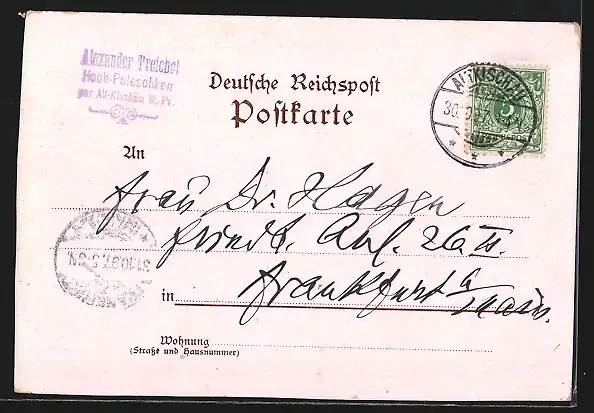 Alexander Treichel
Hoch-Paleschken
per Alt-Kischau W.-Pr.
Deutsche Reichspost
Postkarte
ALT KISCHAU
30.
5
REICHSPOST
An
Frau Dr. Hagen
Friedr. Anl. 26 II.
in Frankfurt a
Main.
31.10.97.
Wohnung
(Straße und Hausnummer)